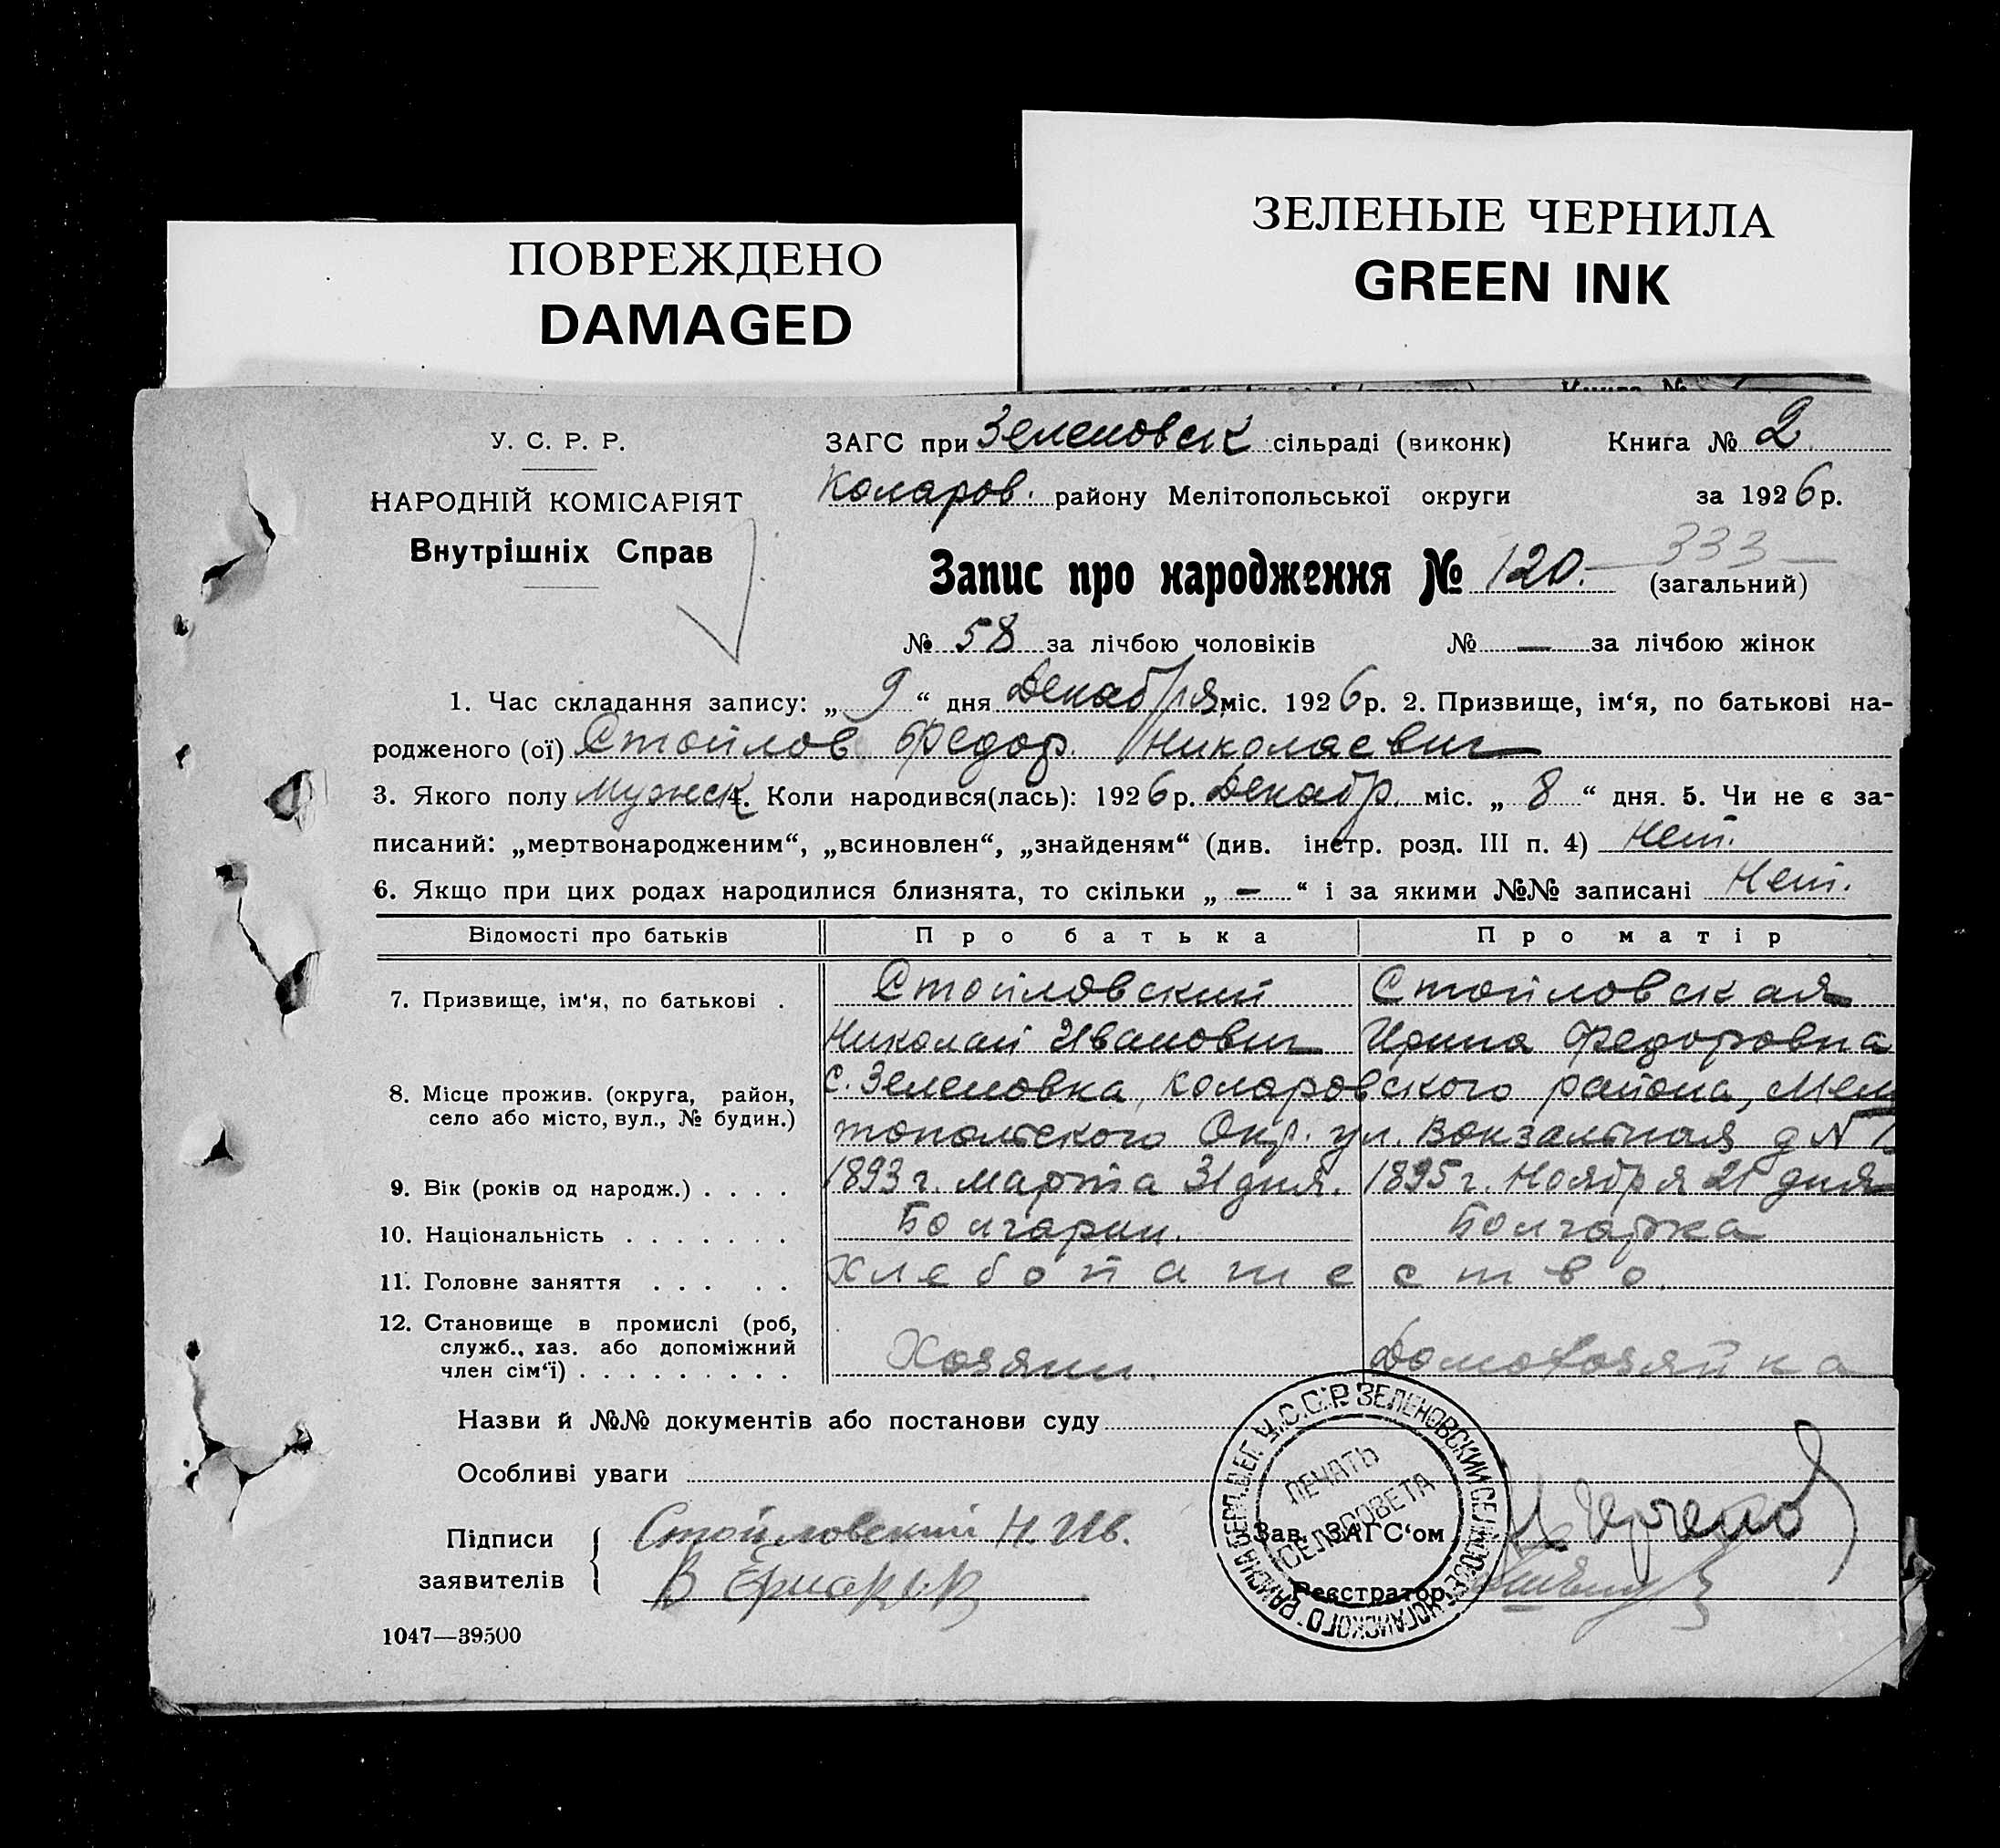 ПОВРЕЖДЕНО
DAMAGED
ЗЕЛЕНЫЕ ЧЕРНИЛА
GREEN INK
У. С. Р. Р.
НАРОДНІЙ КОМІСАРІЯТ
Внутрішніх Справ
ЗАГС при Зеленовск сільраді (виконк) Книга № 2
Коларов. району Мелітопольської округи за 1926 р.
Запис про народження № 120. 333 (загальний)
№ 58 за лічбою чоловіків № — за лічбою жінок
1. Час складання запису: „ 9 “ дня Декабря міс. 1926 р. 2. Призвище, ім‘я, по батькові на-
родженого (ої) Стойлов Федор Николаевич
3. Якого полу Мужск 4. Коли народився(лась): 1926 р. Декабр. міс. „ 8 “ дня. 5. Чи не є за-
писаний: „мертвонародженим“, „всиновлен“, „знайденям“ (див. інстр. розд. III п. 4) Нет.
6. Якщо при цих родах народилися близнята, то скільки „ — “ і за якими №№ записані Нет.
Відомості про батьків Про батька Про матір
7. Призвище, ім‘я, по батькові . Стойловский Стойловская
Николай Иванович Ирина Федоровна
8. Місце прожив. (округа, район, село або місто, вул., № будин.) с. Зеленовка, Коларовского района, Мели
топольского Окр. ул. Вокзальная д №
9. Вік (років од народж.) . . . . 1893 г. марта 31 дня. 1895 г. Ноября 21 дня
10. Національність . . . . . . . Болгарин. Болгарка
11. Головне заняття . . . . . Хлебопашество.
12. Становище в промислі (роб, служб., хаз. або допоміжний член сім‘ї) . . . . . . . . . Хозяин. Домохозяйка
Назви й №№ документів або постанови суду
Особливі уваги
Підписи заявителів Стойловский Н. Ив.
Зав. ЗАГС‘ом
Реєстратор
У.С.С.Р. ЗЕЛЕНОВСКИЙ СЕЛЬСОВЕТ НОГАЙСКОГО РАЙОНА БЕРД.
ПЕЧАТЬ
СЕЛЬСОВЕТА
1047—39500